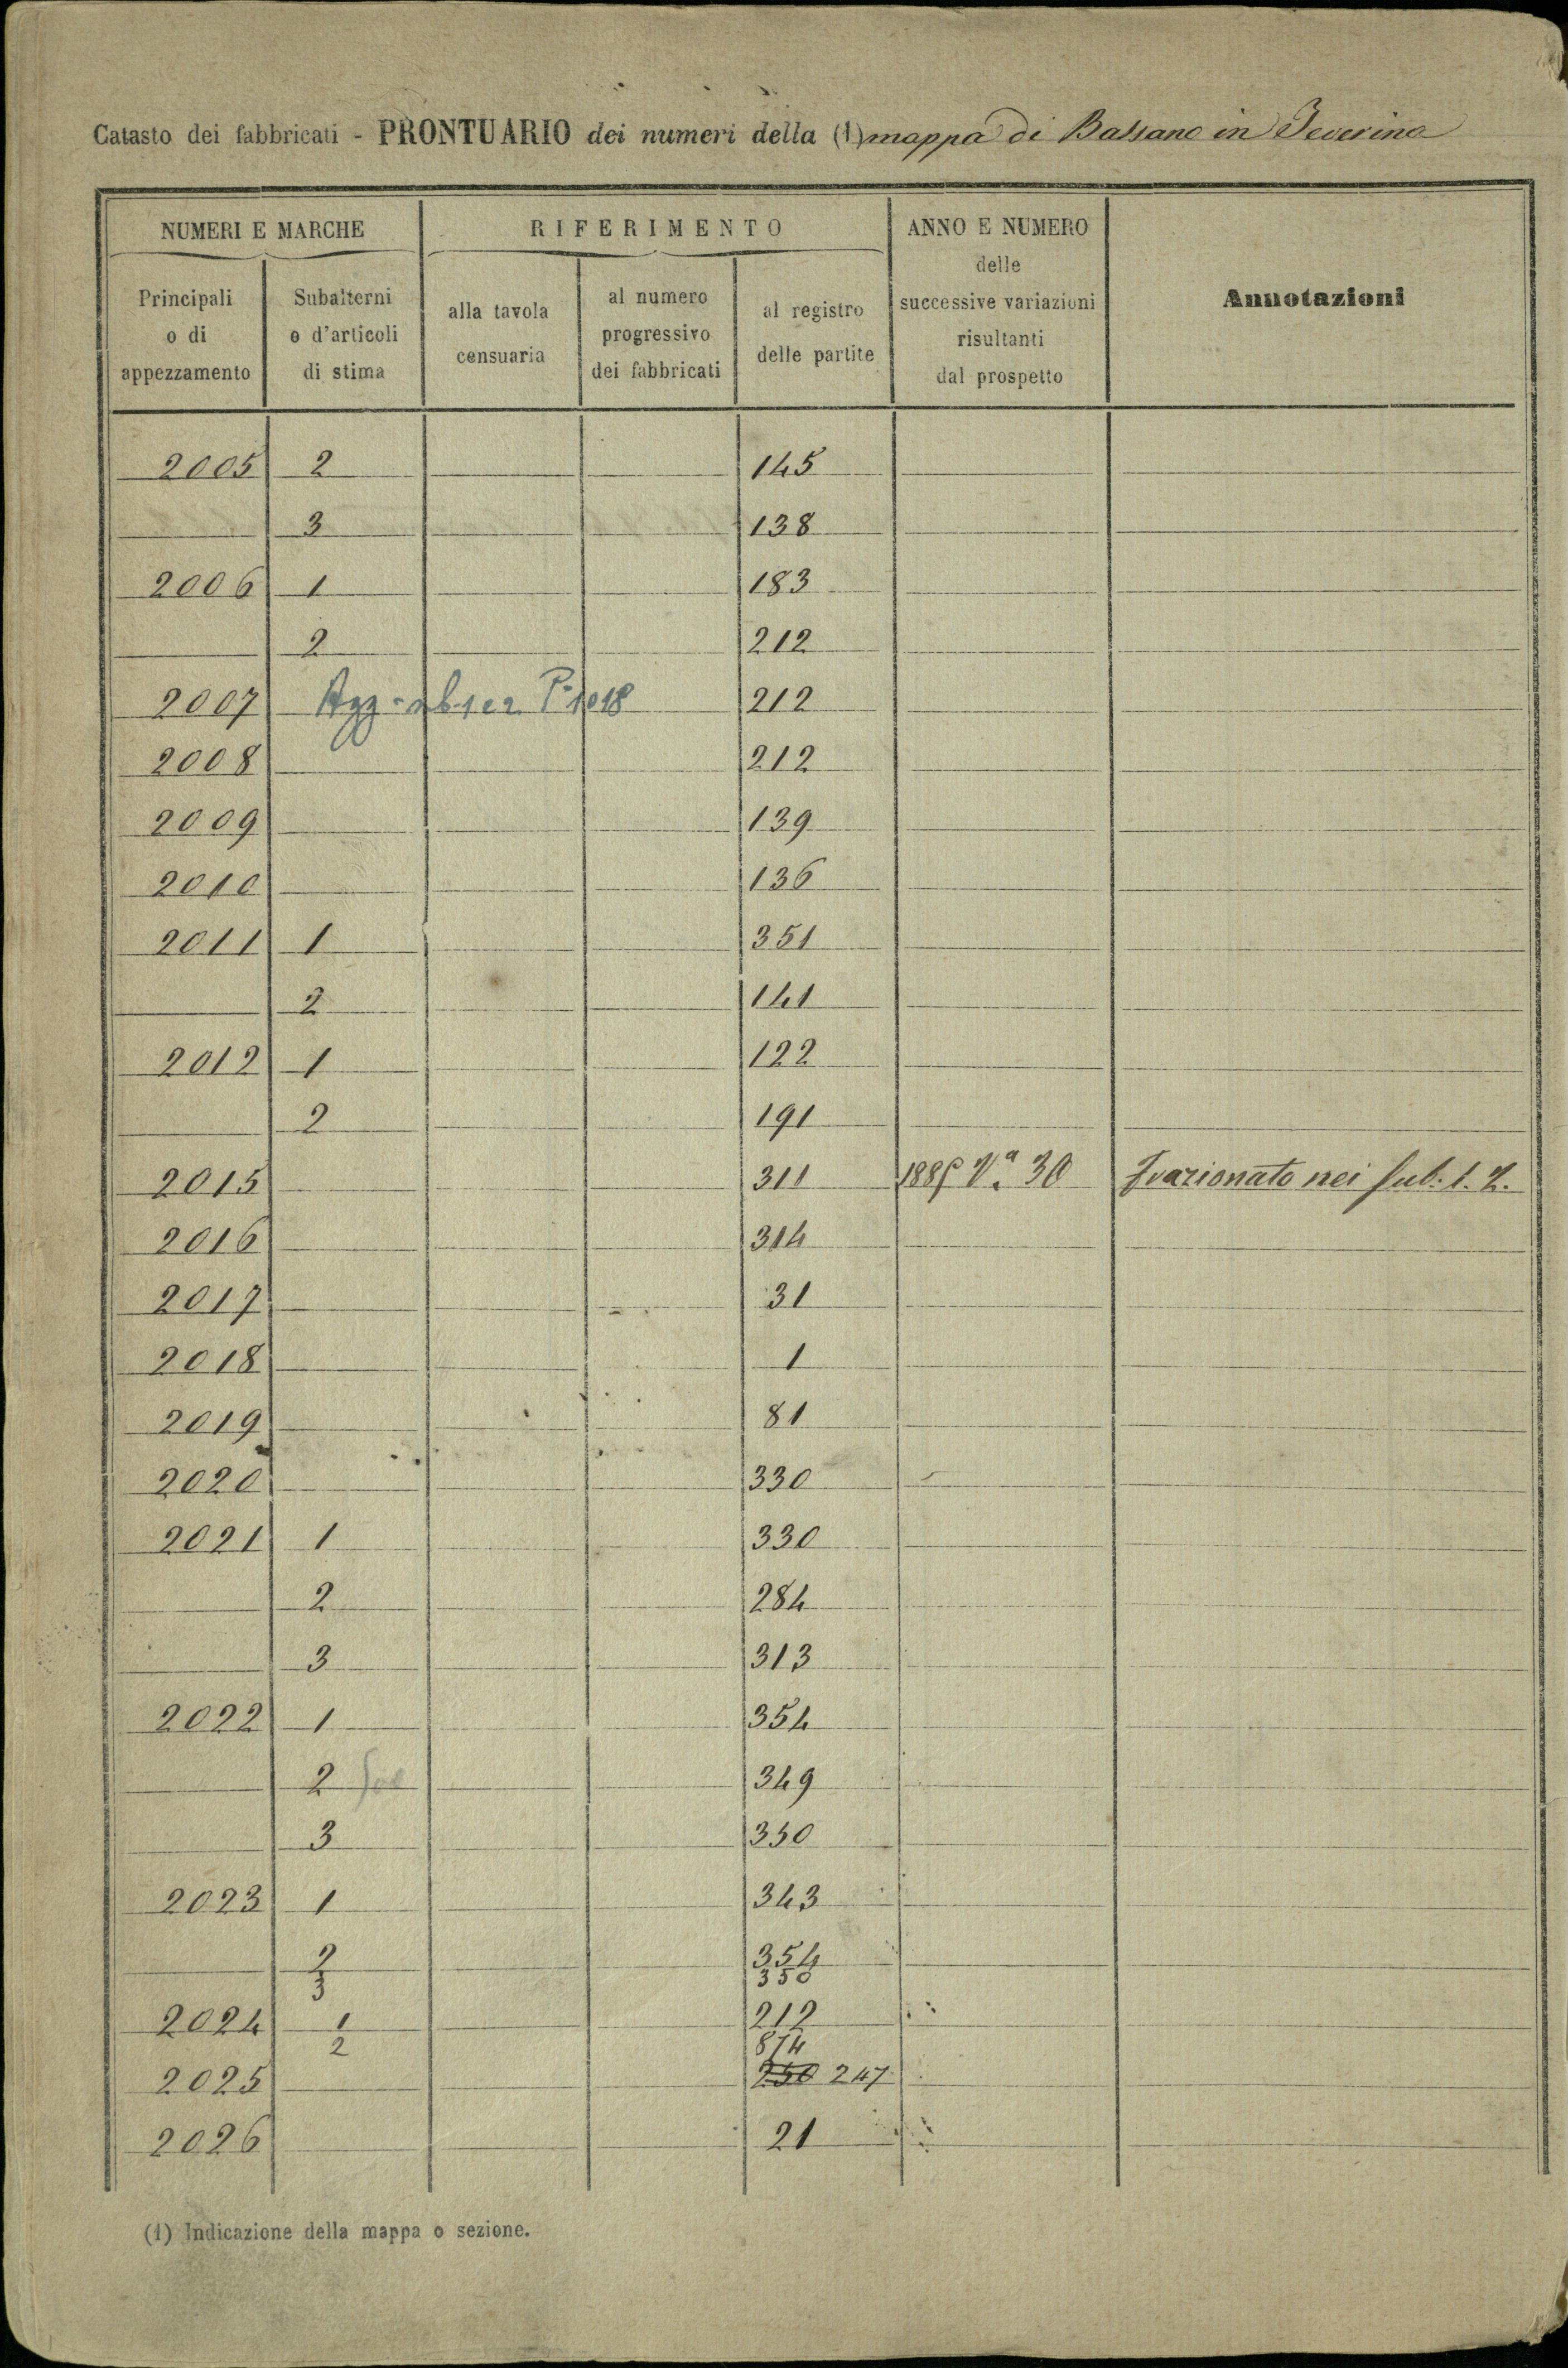 Catasto dei fabbricati - PRONTUARIO dei numeri della (1) mappa di Bassano in Teverina
NUMERI E MARCHE RIFERIMENTO ANNO E NUMERO delle successive variazioni risultanti dal prospetto Annotazioni
Principali o di appezzamento Subalterni o d'articoli di stima alla tavola censuaria al numero progressivo dei fabbricati al registro delle partite
2005 2 145
3 138
2006 1 183
2 212
2007 212
2008 212
2009 139
2010 136
2011 1 351
2 141
2012 1 122
2 191
2015 311 Na 30 Frazionato nei Sub. 1. 2.
2016 314
2017 31
2018 1
2019 81
2020 330
2021 1 330
2 284
3 313
2022 1 354
2 349
3 350
2023 1 343
2 354
3 350
2024 1 212
2 874
2025 250 247
2026 21
(1) Indicazione della mappa o sezione.